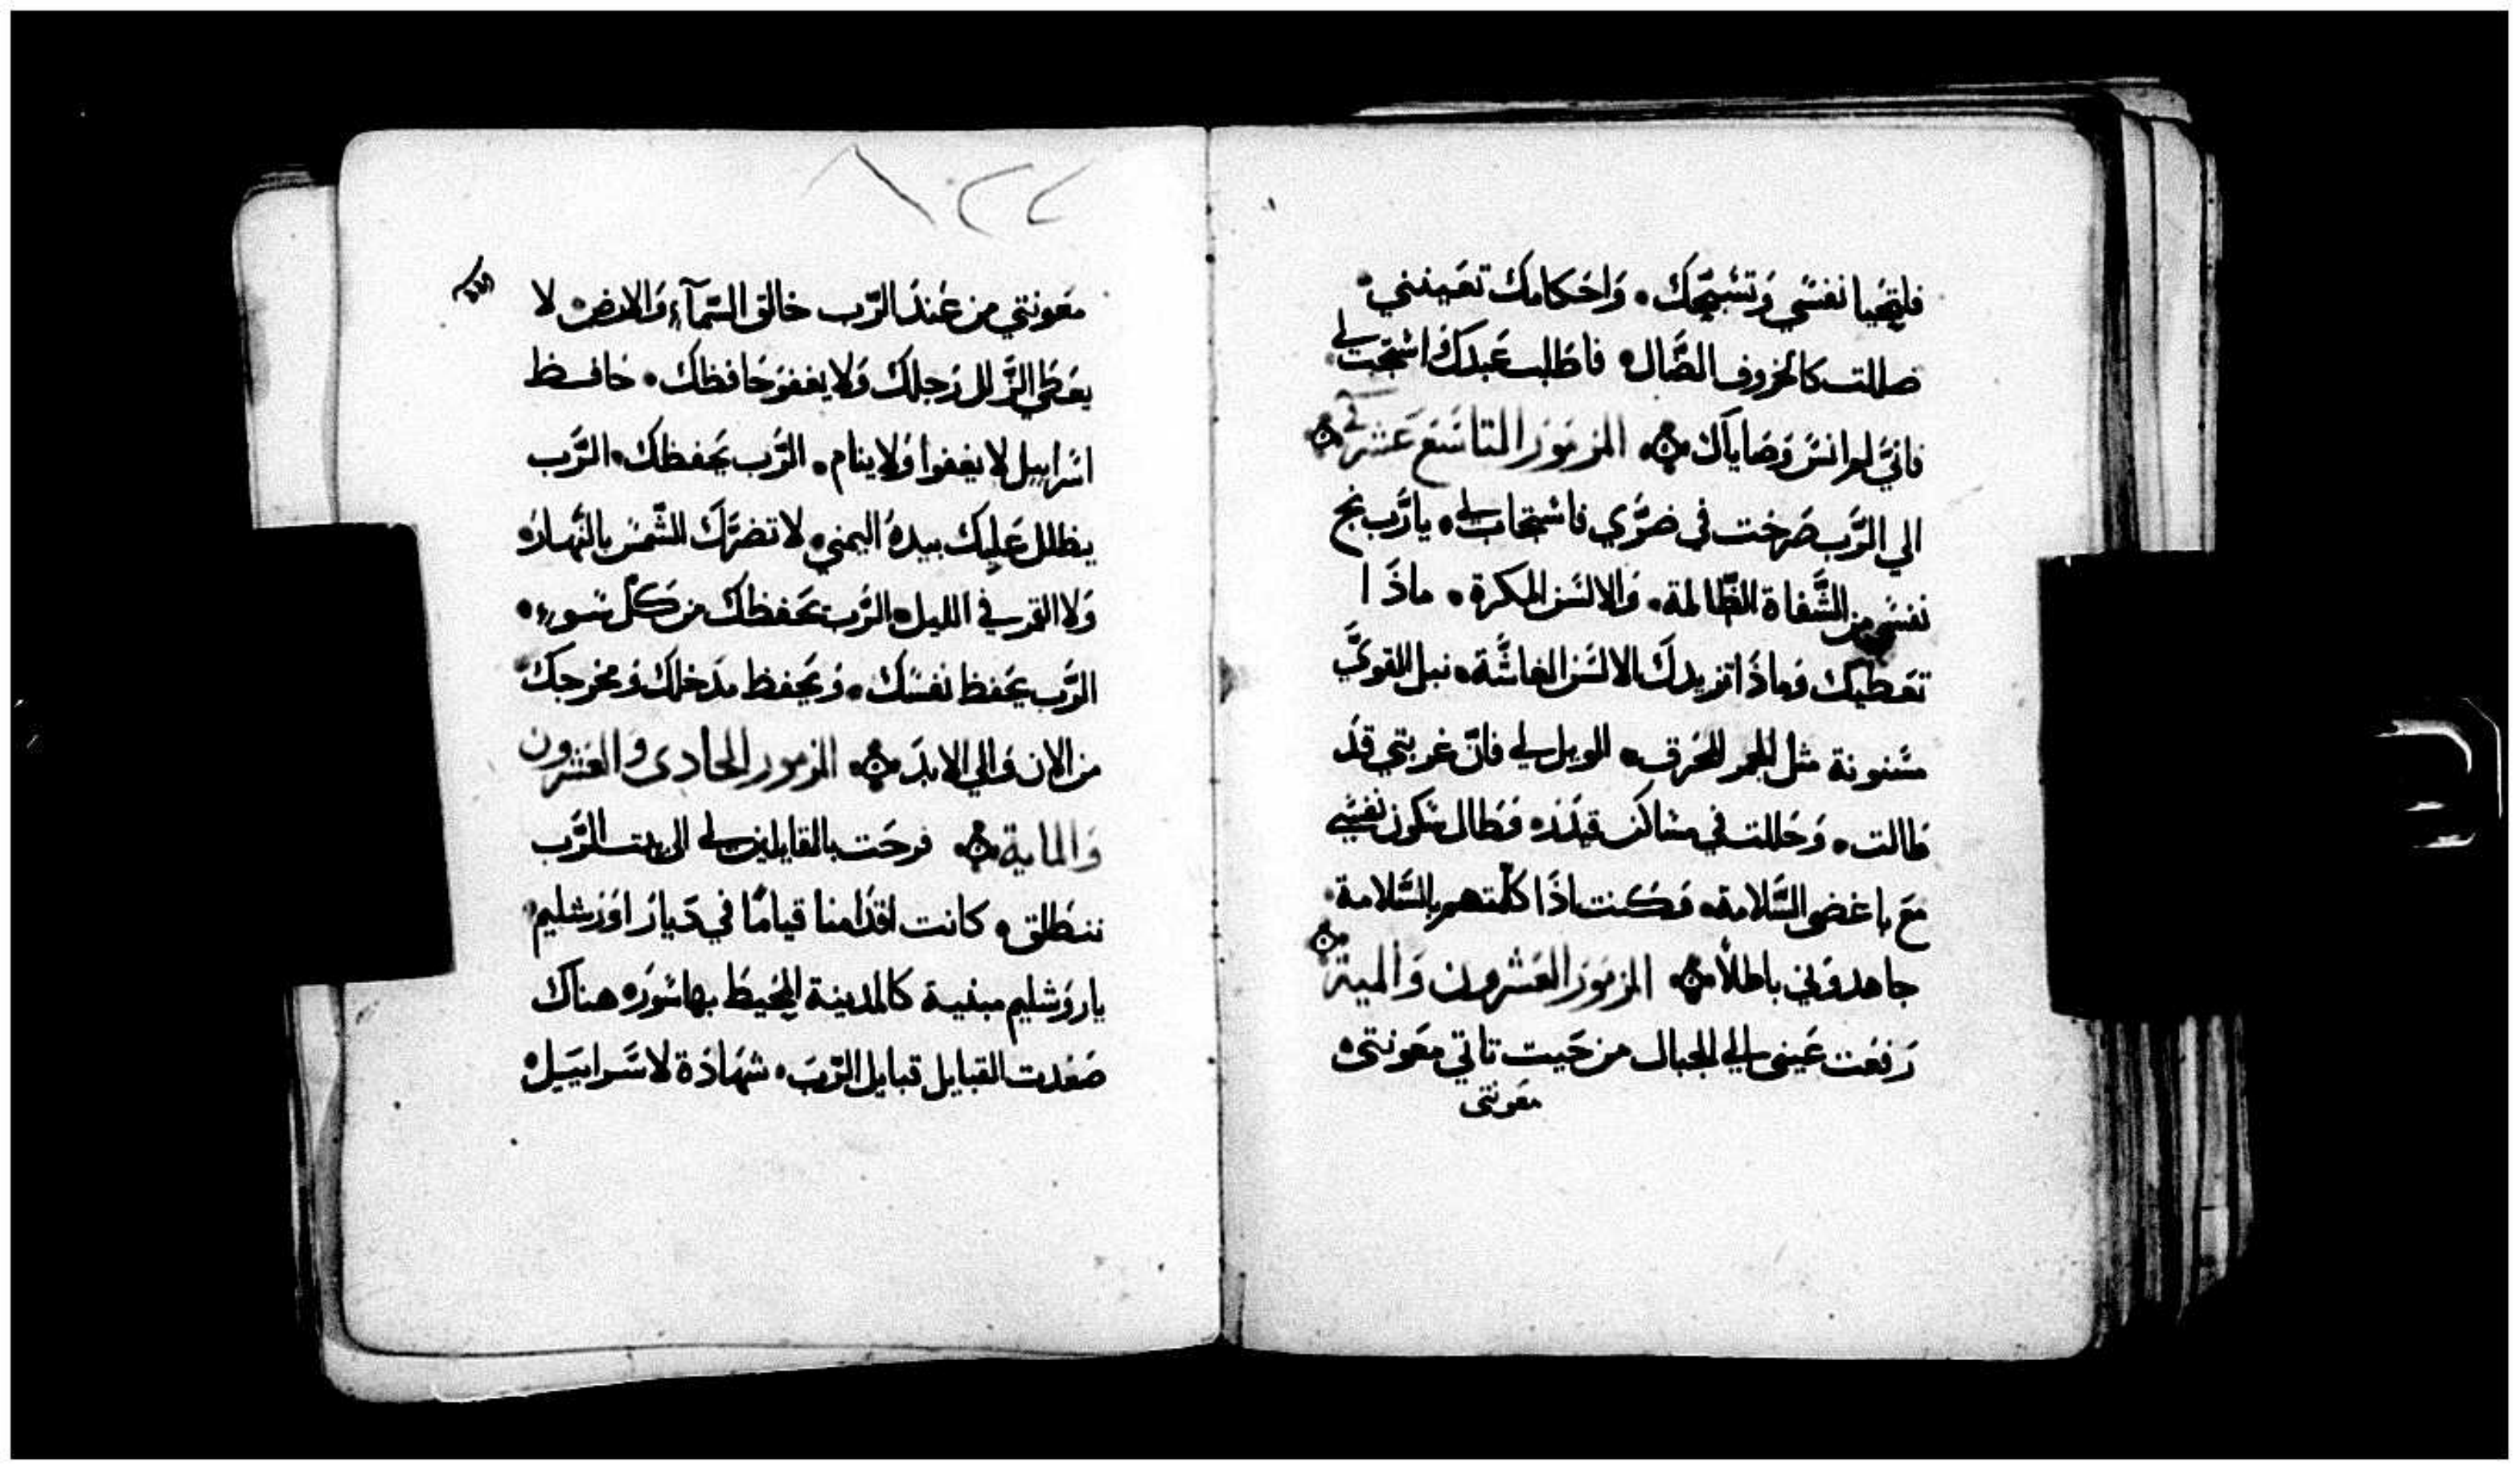 فلتحيا نفسي وَتسَبِّحك • وَاحَكامك تعَينني •
ضللت كالخروف الضَّال • فاطَلب عَبدكَ اشتجب لي
فانيَّ لم انسَ وَصَاياك • المزمَور التاسَع عَشر
الي الرَّب صَرخت في ضرّي فاشتجاب لي • يا رَّب نج
نفسَي من الشَّفاة الظَّالمة • وَالالسَن المكرة • ماذَا
تعَطيك وَماذَا تزيدكَ الالسَن الغاشَّة • نبل القويَّ
مسَنونة مثل الجمر المحَرق • الويل لي فانّ غربتي قدَ
طَالت • وَحَللت في مسَاكن قيدَر • وَطَال سَكون نفسَي
مَع باغضي السَّلامة • وَكنت اذَا كلّمتهم بالسَّلامة •
جاهدوَني باطلاً • المزمَور العَشرون وَالمية
رَفعَت عَيني الي الجبال من حَيت تاتي معَونتي •
معَونتي
١٢٢
معَونتي من عَندَ الرَّب خالق السَّمآء وَالارض • لا
يعَطَي الزَّلل رَجلك وَلا يغفوَ حَافظك • حَافظ
اسَراييل لا يغفوا وَلا ينام • الرَّب يحَفظك • الرَّب
يظلل عَليك بيدهَ اليمني • لا تضرَّكَ الشَّمسَ بالنَّهار •
وَلا القمر في الليل • الرَّب يحَفظك من كلّ سَوء •
الرَّب يحَفظ نفسَك • وَيحَفظ مدَخلك وَمخرجك •
من الان وَالي الابدَ • المزمور الحادي وَالعَشرون
وَالماية • فرحَت بالقايلين لي الي بيت الرَّب
ننطَلق • كانت اقدَامنا قيامًا في دَيارَ اوَرَشليم •
يارورشليم مبنية كالمدينة المحَيطَ بها سَور • هناك
صَعَدت القبايل قبايل الرَّبَ • شهَادَة لاسَراييَل •